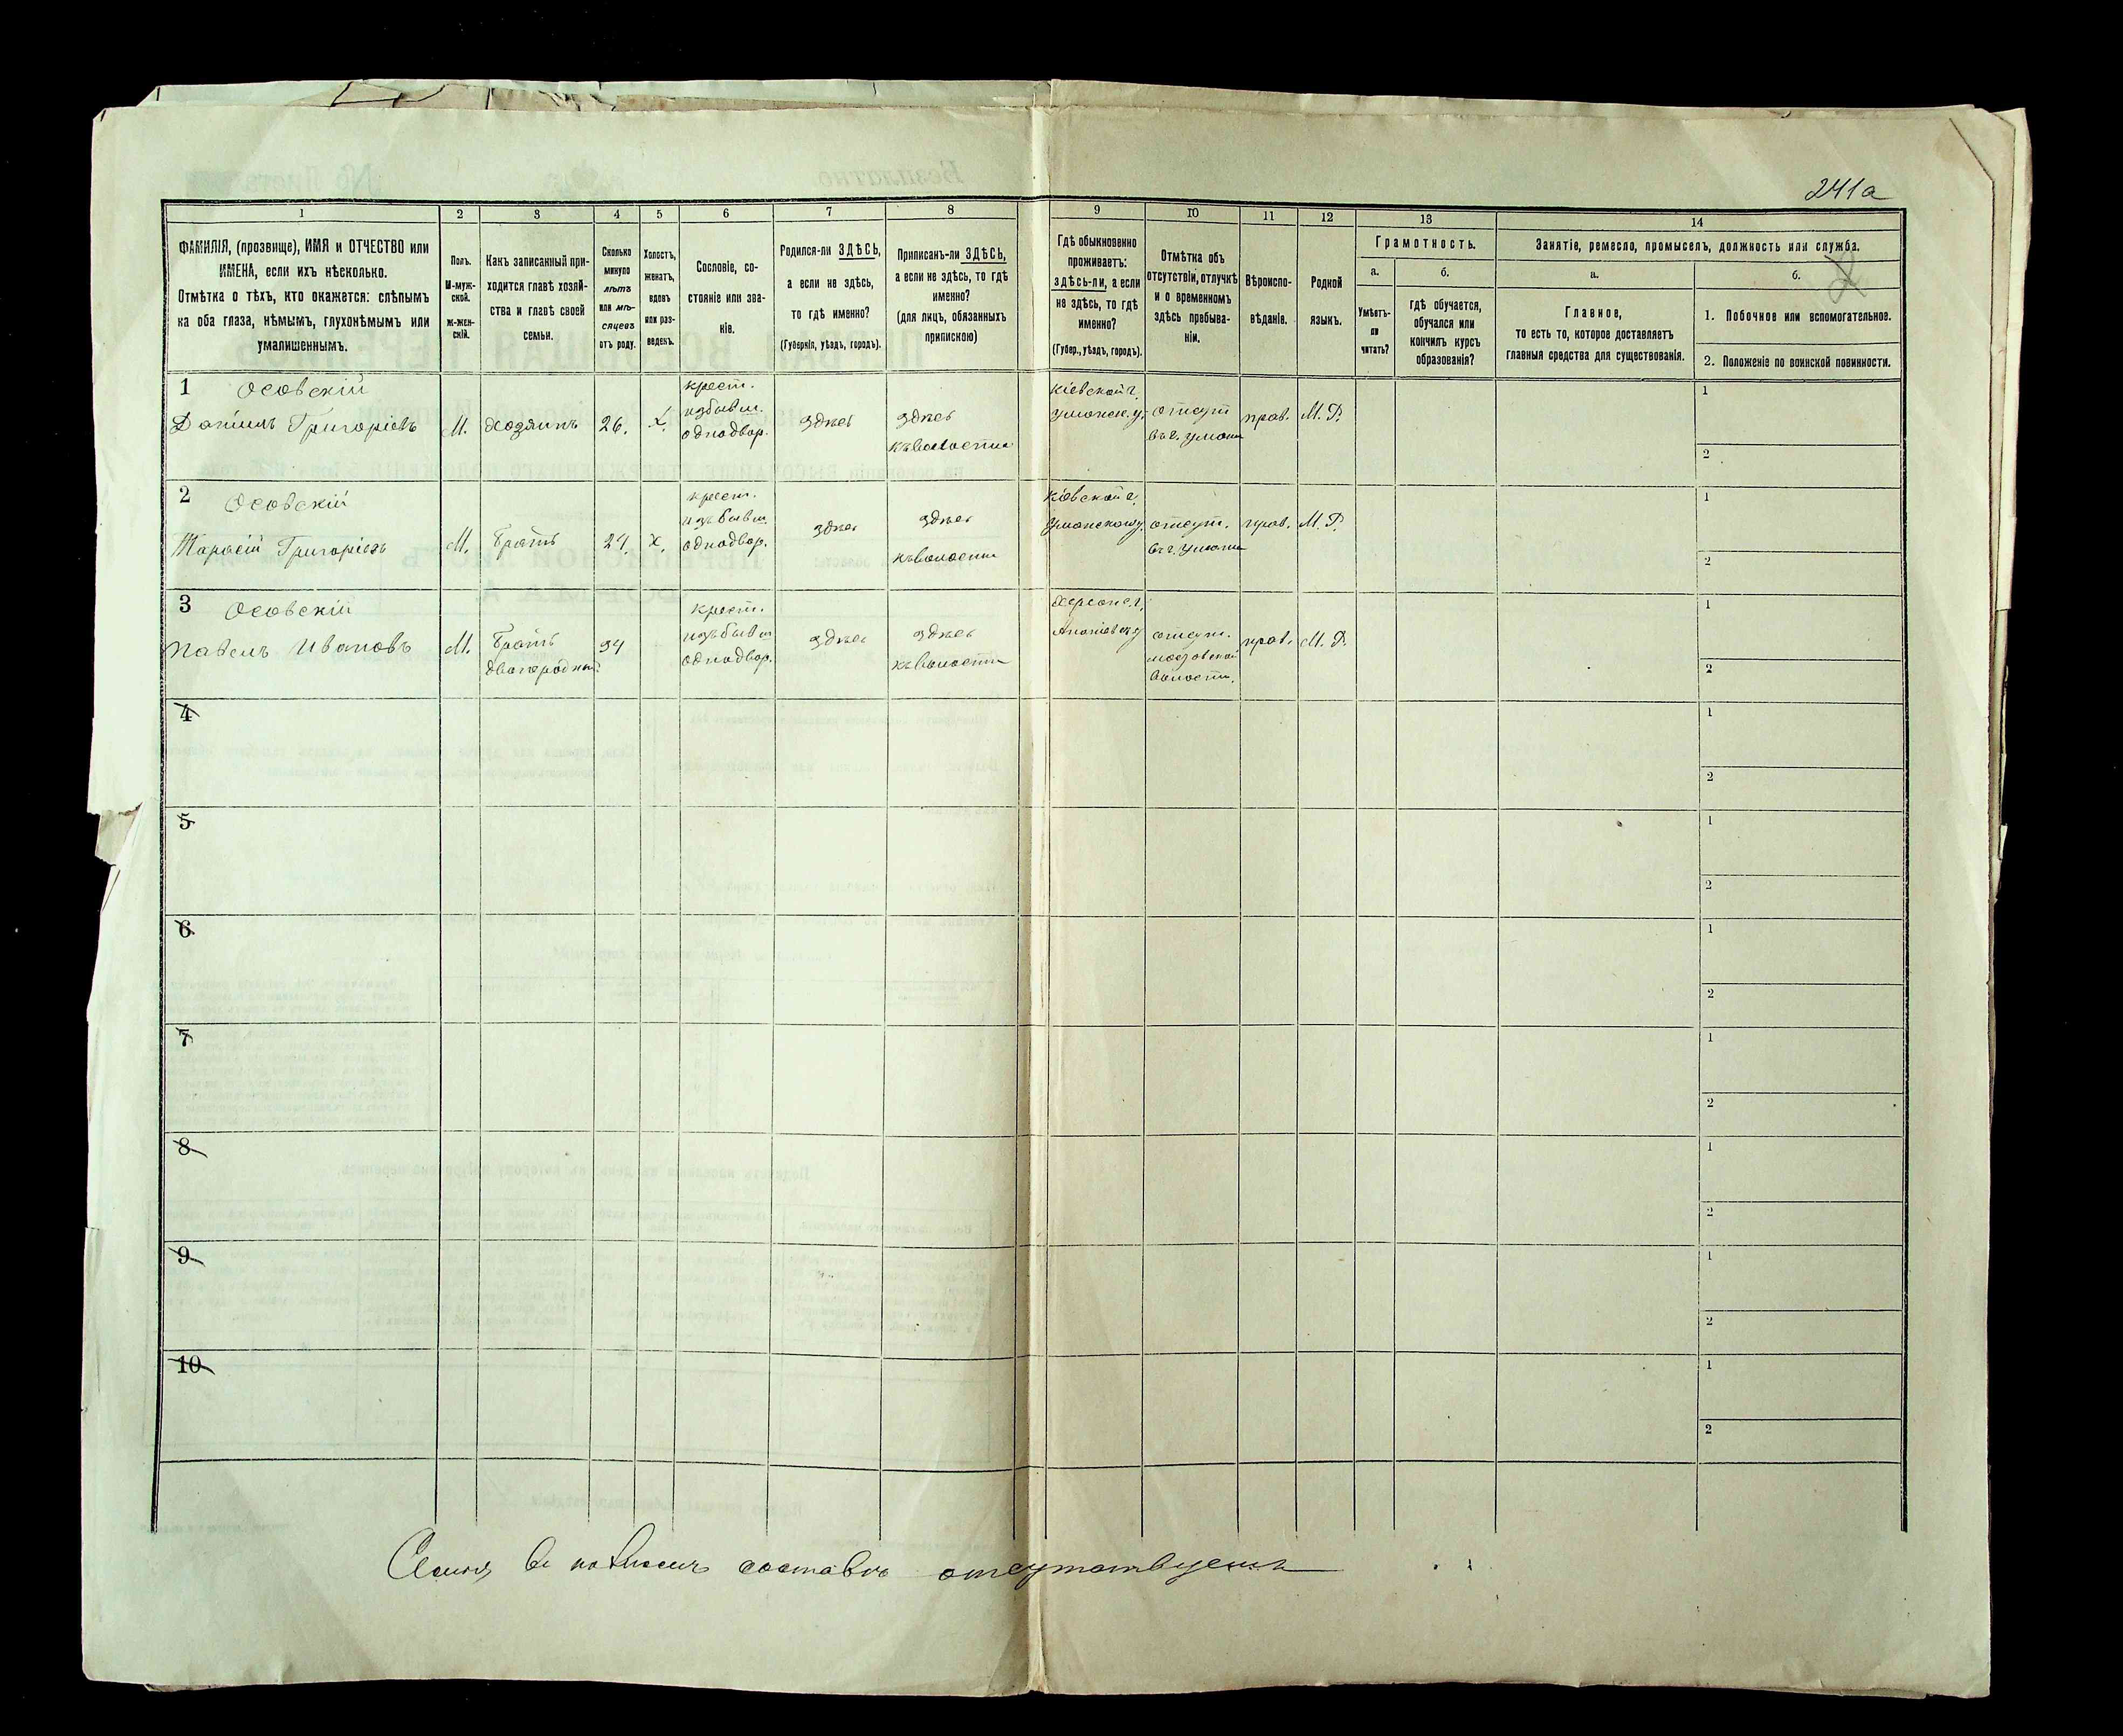 241а
1
2
3
4
5
6
7
8
9
10
11
12
13
14
ФАМИЛІЯ, (прозвище), ИМЯ и ОТЧЕСТВО или
ИМЕНА, если ихъ нѣсколько.
Отмѣтка о тѣхъ, кто окажется: слѣпымъ
на оба глаза, нѣмымъ, глухонѣмымъ или
умалишеннымъ.
Полъ.
М-муж-
ской.
Ж-жен-
скій.
Какъ записанный при-
ходится главѣ хозяй-
ства и главѣ своей
семьи.
Сколько
минуло
лѣтъ
или мѣ-
сяцевъ
отъ роду.
Холостъ,
женатъ,
вдовъ
или раз-
веденъ.
Сословіе, со-
стояніе или зва-
ніе.
Родился-ли ЗДѢСЬ,
а если не здѣсь,
то гдѣ именно?
(Губернія, уѣздъ, городъ).
Приписанъ-ли ЗДѢСЬ,
а если не здѣсь, то гдѣ
именно?
(для лицъ, обязанныхъ
припискою)
Гдѣ обыкновенно
проживаетъ:
здѣсь-ли, а если
не здѣсь, то гдѣ
именно?
(Губер., уѣздъ, городъ).
Отмѣтка объ
отсутствіи, отлучкѣ
и о временномъ
здѣсь пребыва-
ніи.
Вѣроиспо-
вѣданіе.
Родной
языкъ.
Грамотность.
а.
б.
Умѣетъ-
ли
читать?
гдѣ обучается,
обучался или
кончилъ курсъ
образованія?
Занятіе, ремесло, промыселъ, должность или служба.
а.
б.
Главное,
то есть то, которое доставляетъ
главныя средства для существованія.
1. Побочное или вспомогательное.
2. Положеніе по воинской повинности.
1 Осовскій
Даніилъ Григорьевъ
М.
хозяинъ
26.
Х.
крест.
изъ бывш.
однодвор.
здѣсь
здѣсь
къ волости
Кіевской г.
Уманск. у.
отсут
въ г. Умани
прав.
М. Р.
1
2
2 Осовскій
Тарасій Григорьевъ
М.
братъ
24.
х.
крест.
изъ бывш.
однодвор.
здѣсь
здѣсь
къ волости
Кіевской г.
Уманскому.
отсут.
въ г. Умани
прав.
М. Р.
1
2
3 Осовскій
Павелъ Ивановъ
М.
братъ
двоюродный
34
крест.
изъ бывш
однодвор.
здѣсь
здѣсь
къ волости
Херсонс. г.
Ананіевск у
отсут.
волости.
прав.
М. Р.
1
2
4
1
2
5
1
2
6
1
2
7
1
2
8
1
2
9
1
2
10
1
2
Семья въ полномъ составѣ отсутствуетъ